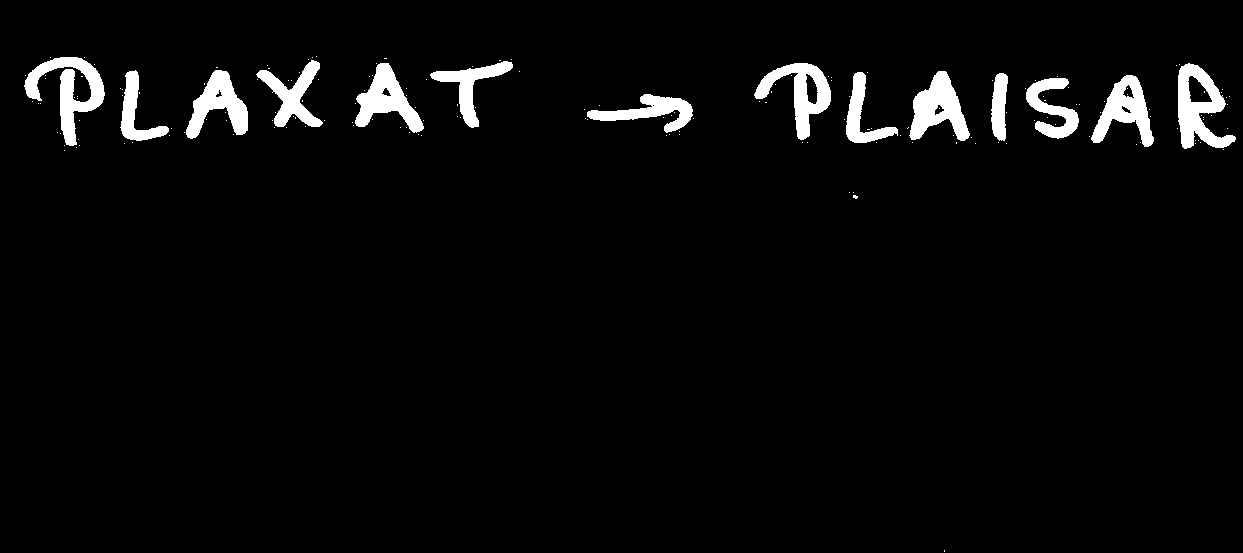 PLAXAT → PLAISAR